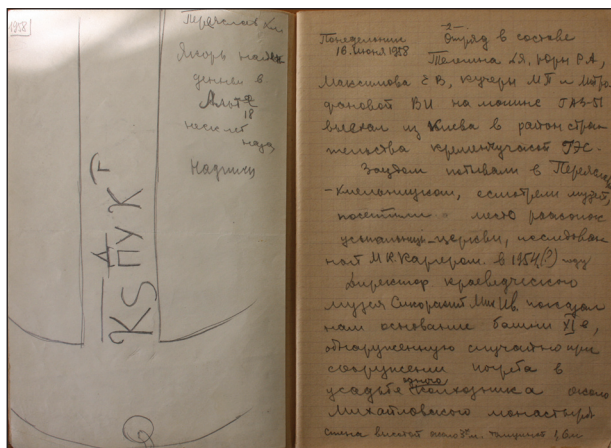 1958
Переяслав Хм
Якорь най
денный в
18
несколько лет
назад
Надпись
К S П У К Г
-2-
Понедельник Отряд в составе
16 июня 1958 Телегина Д.Я, Юры Р.А,
Максимова Е В, Кучеры М П и Митро
фановой ВИ на машине ГАЗ-51
выехал из Киева в район строи
тельства кременчугской ГЭС.
Заездом побывали в Переясл
-Хмельницком, осмотрели музей,
посетили место раскопок
усыпальницы-церкви, исследован
ной М.К.Каргером. в 1954(?) году
Директор краеведческого
музея Сикорский Мих Ив. показал
нам основание башни XI в,
обнаруженную случайно при
сооружении погреба в
усадьбе одного колхозника около
Михайловского монастыря.
стена высотой около 3 м. толщиной 1,6 м